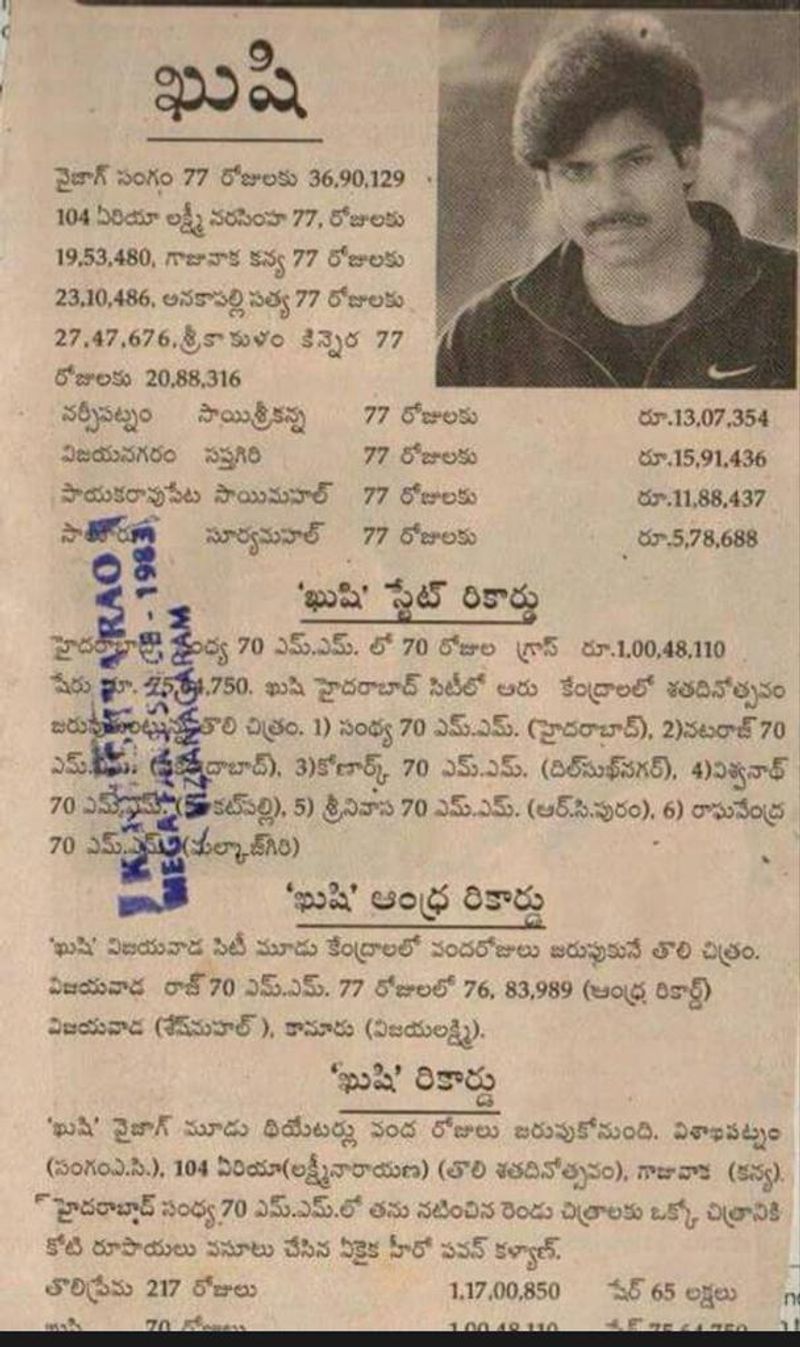 ఖుషి
వైజాగ్ సంగం 77 రోజులకు 36,90,129
104 ఏరియా లక్ష్మీ నరసింహ 77, రోజులకు
19,53,480, గాజువాక కన్య 77 రోజులకు
23,10,486, అనకాపల్లి సత్య 77 రోజులకు
27,47,676, శ్రీకాకుళం కిన్నెర 77
రోజులకు 20,88,316
నర్సీపట్నం సాయిశ్రీకన్న 77 రోజులకు రూ.13,07,354
విజయనగరం సప్తగిరి 77 రోజులకు రూ.15,91,436
పాయకరావుపేట సాయిమహల్ 77 రోజులకు రూ.11,88,437
సూర్యమహల్ 77 రోజులకు రూ.5,78,688
'ఖుషి' స్టేట్ రికార్డు
హైదరాబాద్ సంధ్య 70 ఎమ్.ఎమ్. లో 70 రోజుల గ్రాస్ రూ.1,00,48,110
షేరు రూ. 750. ఖుషి హైదరాబాద్ సిటీలో ఆరు కేంద్రాలలో శతదినోత్సవం
తొలి చిత్రం. 1) సంధ్య 70 ఎమ్.ఎమ్. (హైదరాబాద్), 2)నటరాజ్ 70
3)కోణార్క్ 70 ఎమ్.ఎమ్. (దిల్‌సుఖ్‌నగర్), 4)విశ్వనాథ్
70 ఎమ్.ఎమ్ 5) శ్రీనివాస 70 ఎమ్.ఎమ్. (ఆర్.సి.పురం), 6) రాఘవేంద్ర
70 ఎమ్.ఎమ్ (మల్కాజ్‌గిరి)
MEGA VIZIANAGARAM
'ఖుషి' ఆంధ్ర రికార్డు
'ఖుషి' విజయవాడ సిటీ మూడు కేంద్రాలలో వందరోజులు జరుపుకునే తొలి చిత్రం.
విజయవాడ రాజ్ 70 ఎమ్.ఎమ్. 77 రోజులలో 76, 83,989 (ఆంధ్ర రికార్డ్)
విజయవాడ (శేష్‌మహల్ ), కానూరు (విజయలక్ష్మి).
'ఖుషి' రికార్డు
'ఖుషి' వైజాగ్ మూడు థియేటర్లు వంద రోజులు జరుపుకోనుంది. విశాఖపట్నం
(సంగంఎ.సి.), 104 ఏరియా(లక్ష్మీనారాయణ) (తొలి శతదినోత్సవం), గాజువాక (కన్య).
హైదరాబాద్ సంధ్య 70 ఎమ్.ఎమ్.లో తను నటించిన రెండు చిత్రాలకు ఒక్కో చిత్రానికి
కోటి రూపాయలు వసూలు చేసిన ఏకైక హీరో పవన్ కళ్యాణ్.
తొలిప్రేమ 217 రోజులు 1,17,00,850 షేర్ 65 లక్షలు